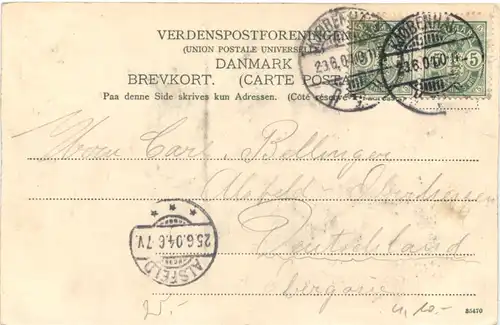 VERDENSPOSTFORENINGEN
(UNION POSTALE UNIVERSELLE)
DANMARK
BREVKORT. (CARTE POSTALE)
Paa denne Side skrives kun Adressen. (Côté réservé à l'adresse)
KJØBENHAVN
23.6.04
5
KJØBENHAVN
23.6.04
5
Herrn Carl Bollinger
Alsfeld - Oberhessen
Deutschland
25.6.04.6-7V.
ALSFELD
55470